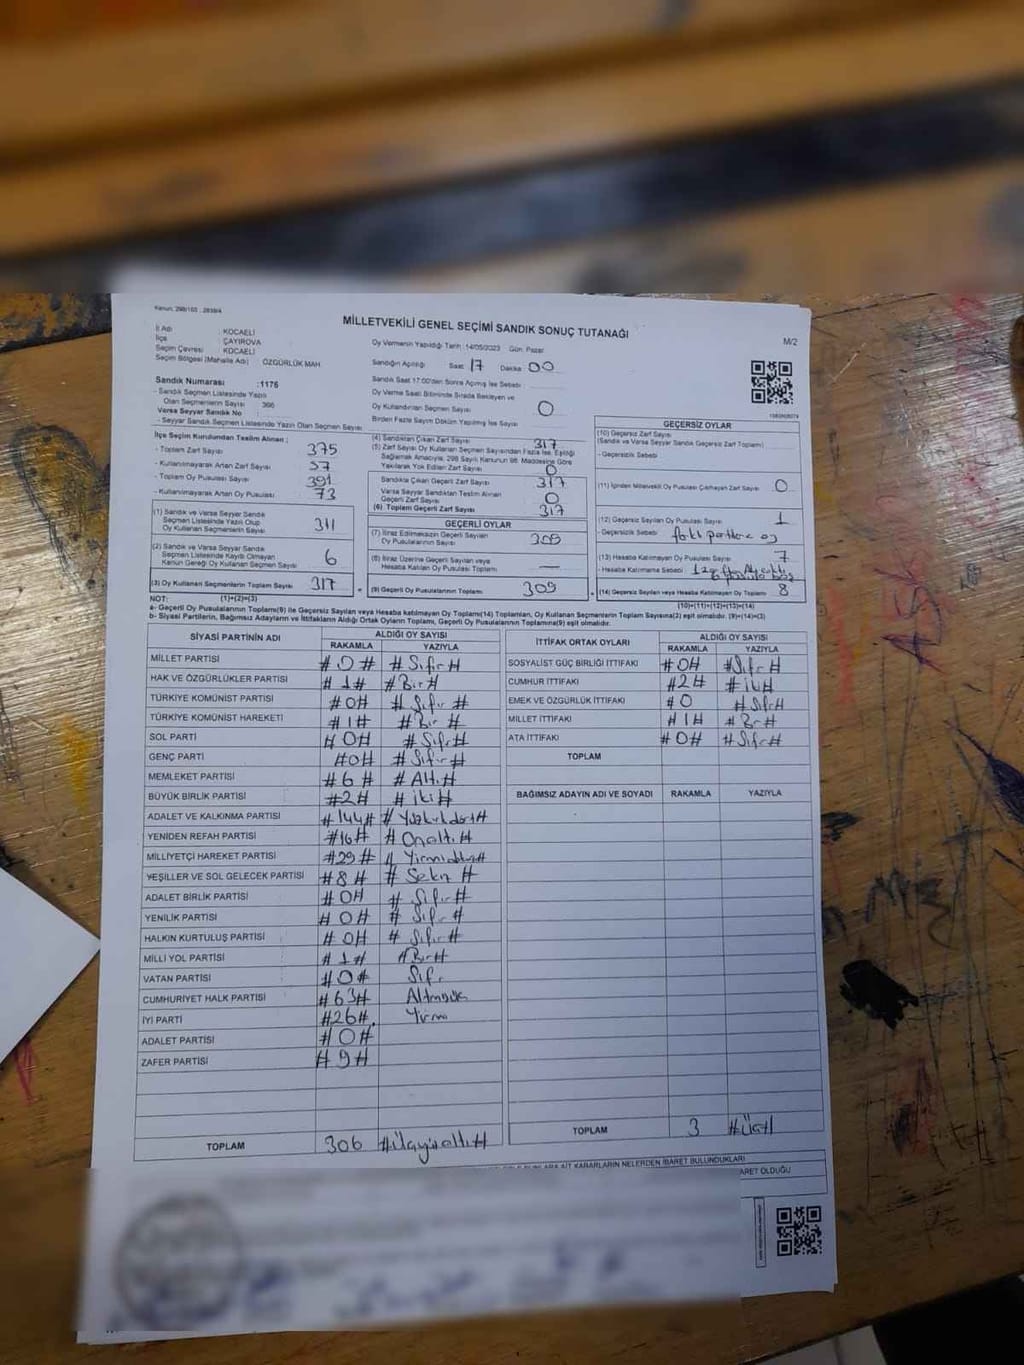 Kanun: 298/105 : 2839/4
MİLLETVEKİLİ GENEL SEÇİMİ SANDIK SONUÇ TUTANAĞI
M/2
İl Adı : KOCAELİ
İlçe : ÇAYIROVA
Seçim Çevresi : KOCAELİ
Seçim Bölgesi (Mahalle Adı) : ÖZGÜRLÜK MAH
Oy Vermenin Yapıldığı Tarih : 14/05/2023 Gün: Pazar
Sandığın Açıldığı Saat 17 Dakika 00
Sandık Saat 17:00'den Sonra Açılmış İse Sebebi :
Oy Verme Saati Bitiminde Sırada Bekleyen ve
Oy Kullandırılan Seçmen Sayısı : 0
Birden Fazla Sayım Döküm Yapılmış İse Sayısı :
Sandık Numarası : 1176
- Sandık Seçmen Listesinde Yazılı
Olan Seçmenlerin Sayısı : 366
Varsa Seyyar Sandık No :
- Seyyar Sandık Seçmen Listesinde Yazılı Olan Seçmen Sayısı
İlçe Seçim Kurulundan Teslim Alınan ;
- Toplam Zarf Sayısı : 375
- Kullanılmayarak Artan Zarf Sayısı : 57
- Toplam Oy Pusulası Sayısı : 391
- Kullanılmayarak Artan Oy Pusulası : 73
(1) Sandık ve Varsa Seyyar Sandık
Seçmen Listesinde Yazılı Olup
Oy Kullanan Seçmenlerin Sayısı 311
(2) Sandık ve Varsa Seyyar Sandık
Seçmen Listesinde Kayıtlı Olmayan
Kanun Gereği Oy Kullanan Seçmen Sayısı 6
(3) Oy Kullanan Seçmenlerin Toplam Sayısı 317
(4) Sandıktan Çıkan Zarf Sayısı : 317
(5) Zarf Sayısı Oy Kullanan Seçmen Sayısından Fazla İse, Eşitliği
Sağlamak Amacıyla, 298 Sayılı Kanunun 98. Maddesine Göre
Yakılarak Yok Edilen Zarf Sayısı : 0
Sandıkta Çıkan Geçerli Zarf Sayısı : 317
Varsa Seyyar Sandıktan Teslim Alınan
Geçerli Zarf Sayısı : 0
(6) Toplam Geçerli Zarf Sayısı : 317
GEÇERLİ OYLAR
(7) İtiraz Edilmeksizin Geçerli Sayılan
Oy Pusulalarının Sayısı : 309
(8) İtiraz Üzerine Geçerli Sayılan veya
Hesaba Katılan Oy Pusulası Toplamı —
(9) Geçerli Oy Pusulalarının Toplamı 309
GEÇERSİZ OYLAR
(10) Geçersiz Zarf Sayısı
(Sandık ve Varsa Seyyar Sandık Geçersiz Zarf Toplamı)
- Geçersizlik Sebebi :
(11) İçinden Milletvekili Oy Pusulası Çıkmayan Zarf Sayısı : 0
(12) Geçersiz Sayılan Oy Pusulası Sayısı : 1
- Geçersizlik Sebebi : farklı partilere oy
(13) Hesaba Katılmayan Oy Pusulası Sayısı : 7
- Hesaba Katılmama Sebebi :
(14) Geçersiz Sayılan veya Hesaba Katılmayan Oy Toplamı 8
NOT: (1)+(2)=(3)
(10)+(11)+(12)+(13)=(14)
a- Geçerli Oy Pusulalarının Toplamı(9) ile Geçersiz Sayılan veya Hesaba katılmayan Oy Toplamı(14) Toplamları, Oy Kullanan Seçmenlerin Toplam Sayısına(3) eşit olmalıdır. (9)+(14)=(3)
b- Siyasi Partilerin, Bağımsız Adayların ve İttifakların Aldığı Ortak Oyların Toplamı, Geçerli Oy Pusulalarının Toplamına(9) eşit olmalıdır.
SİYASİ PARTİNİN ADI ALDIĞI OY SAYISI
RAKAMLA YAZIYLA
MİLLET PARTİSİ #0# #Sıfır#
HAK VE ÖZGÜRLÜKLER PARTİSİ #1# #Bir#
TÜRKİYE KOMÜNİST PARTİSİ #0# #Sıfır#
TÜRKİYE KOMÜNİST HAREKETİ #1# #Bir#
SOL PARTİ #0# #Sıfır#
GENÇ PARTİ #0# #Sıfır#
MEMLEKET PARTİSİ #6# #Altı#
BÜYÜK BİRLİK PARTİSİ #2# #iki#
ADALET VE KALKINMA PARTİSİ #144# #Yüzkırkdört#
YENİDEN REFAH PARTİSİ #16# #Onaltı#
MİLLİYETÇİ HAREKET PARTİSİ #29# #Yirmidokuz#
YEŞİLLER VE SOL GELECEK PARTİSİ #8# #Sekiz#
ADALET BİRLİK PARTİSİ #0# #Sıfır#
YENİLİK PARTİSİ #0# #Sıfır#
HALKIN KURTULUŞ PARTİSİ #0# #Sıfır#
MİLLİ YOL PARTİSİ #1# #Bir#
VATAN PARTİSİ #0# Sıfır
CUMHURİYET HALK PARTİSİ #63# Altmışüç
İYİ PARTİ #26# Yirmi
ADALET PARTİSİ #0#
ZAFER PARTİSİ #9#
TOPLAM 306 #üçyüzaltı#
İTTİFAK ORTAK OYLARI ALDIĞI OY SAYISI
RAKAMLA YAZIYLA
SOSYALİST GÜÇ BİRLİĞİ İTTİFAKI #0# #Sıfır#
CUMHUR İTTİFAKI #2# #iki#
EMEK VE ÖZGÜRLÜK İTTİFAKI #0 #Sıfır#
MİLLET İTTİFAKI #1# #Bir#
ATA İTTİFAKI #0# #Sıfır#
TOPLAM
BAĞIMSIZ ADAYIN ADI VE SOYADI RAKAMLA YAZIYLA
TOPLAM 3 #Üç#
AİT KARARLARIN NELERDEN İBARET BULUNDUKLARI
OLDUĞU